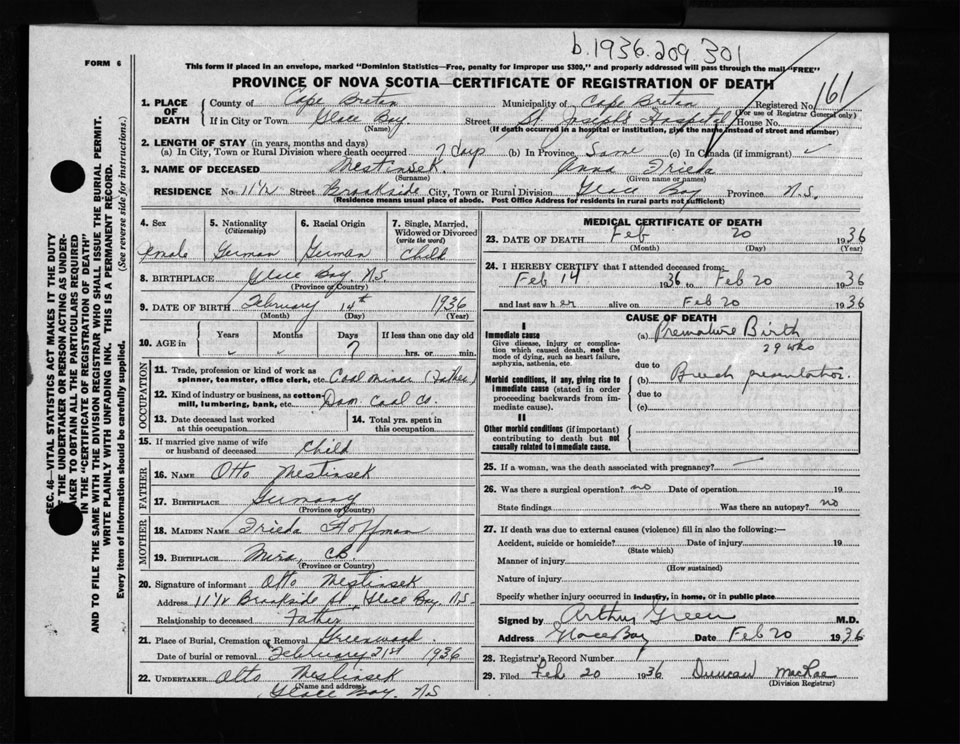 b.1936.209 301
FORM 6
This form if placed in an envelope, marked "Dominion Statistics—Free, penalty for improper use $300," and properly addressed will pass through the mail "FREE"
PROVINCE OF NOVA SCOTIA—CERTIFICATE OF REGISTRATION OF DEATH
161
SEC. 46—VITAL STATISTICS ACT MAKES IT THE DUTY
OF THE UNDERTAKER OR PERSON ACTING AS UNDER-
TAKER TO OBTAIN ALL THE PARTICULARS REQUIRED
IN THE "CERTIFICATE OF REGISTRATION OF DEATH"
AND TO FILE THE SAME WITH THE DIVISION REGISTRAR WHO SHALL ISSUE THE BURIAL PERMIT.
WRITE PLAINLY WITH UNFADING INK. THIS IS A PERMANENT RECORD.
Every item of information should be carefully supplied. (See reverse side for instructions.)
1. PLACE OF DEATH County of Cape Breton Municipality of Cape Breton Registered No.
(For use of Registrar General only)
If in City or Town Glace Bay Street St. Joseph's Hospital House No.
(Name) (If death occurred in a hospital or institution, give the name instead of street and number)
2. LENGTH OF STAY (in years, months and days)
(a) In City, Town or Rural Division where death occurred 7 days (b) In Province Same (c) In Canada (if immigrant)
3. NAME OF DECEASED Mestinsek. Anna Frieda
(Surname) (Given name or names)
RESIDENCE No. 11½ Street Brookside City, Town or Rural Division Glace Bay Province N.S.
(Residence means usual place of abode. Post Office Address for residents in rural parts not sufficient)
4. Sex 5. Nationality (Citizenship) 6. Racial Origin 7. Single, Married, Widowed or Divorced (write the word)
Female German German Child
8. BIRTHPLACE Glace Bay. N.S.
(Province or Country)
9. DATE OF BIRTH February 14th 1936
(Month) (Day) (Year)
10. AGE in Years Months Days 7 If less than one day old hrs. or min.
OCCUPATION
11. Trade, profession or kind of work as
spinner, teamster, office clerk, etc. Coal miner (Father)
12. Kind of industry or business, as cotton
mill, lumbering, bank, etc. Dom. Coal Co.
13. Date deceased last worked at this occupation 14. Total yrs. spent in this occupation
15. If married give name of wife
or husband of deceased Child
FATHER
16. NAME Otto Mestinsek
17. BIRTHPLACE Germany
(Province or Country)
MOTHER
18. MAIDEN NAME Frieda Hoffman
19. BIRTHPLACE Mira, CB.
(Province or Country)
20. Signature of informant Otto Mestinsek
Address 11½ Brookside St, Glace Bay. N.S.
Relationship to deceased Father
21. Place of Burial, Cremation or Removal Greenwood.
Date of burial or removal February 21st 1936
22. UNDERTAKER Otto Mestinsek
(Name and address)
Glace Bay. N.S
MEDICAL CERTIFICATE OF DEATH
23. DATE OF DEATH Feb 20 1936
(Month) (Day) (Year)
24. I HEREBY CERTIFY that I attended deceased from:
Feb 14 1936 to Feb 20 1936
and last saw her alive on Feb 20 1936
CAUSE OF DEATH
I
Immediate cause (a) Premature Birth
Give disease, injury or complica-
tion which caused death, not the
mode of dying, such as heart failure,
asphyxia, asthenia, etc.
29 wks
due to
Morbid conditions, if any, giving rise to
immediate cause (stated in order
proceeding backwards from im-
mediate cause).
(b) Breech presentation.
due to
(c)
II
Other morbid conditions (if important)
contributing to death but not
causally related to immediate cause.
25. If a woman, was the death associated with pregnancy?
26. Was there a surgical operation? no Date of operation 19
State findings Was there an autopsy? no
27. If death was due to external causes (violence) fill in also the following:—
Accident, suicide or homicide? Date of injury 19
(State which)
Manner of injury
(How sustained)
Nature of injury
Specify whether injury occurred in industry, in home, or in public place
Signed by Arthur Green M.D.
Address Glace Bay Date Feb 20 1936
28. Registrar's Record Number
29. Filed Feb 20 1936 Duncan MacRae
(Division Registrar)